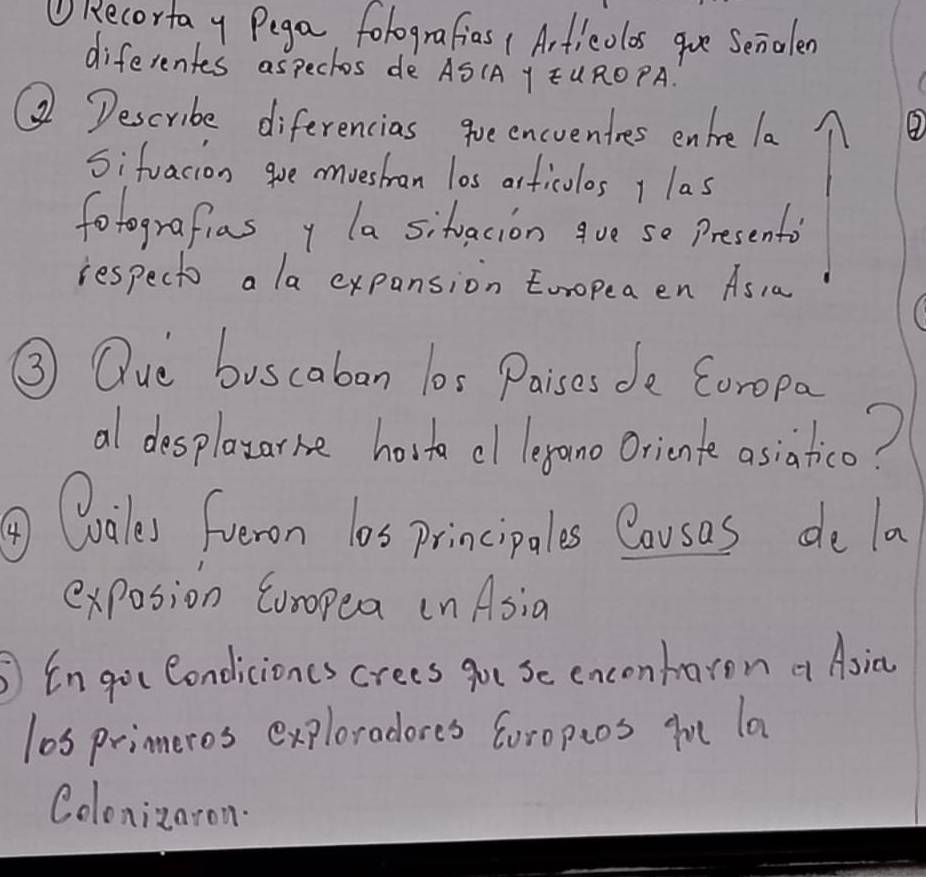 ① Recorta y Pega fotografias, Artículos que Señalen
diferentes aspectos de ASIA y EUROPA.
② Describe diferencias que encuentres entre la
situación que muestran los artículos y las
fotografías y la situación que se Presentó
respecto a la expansión Europea en Asia
③ Qué buscaban los Paises de Europa
al desplazarse hasta el lejano Oriente asiático?
④ Cuáles fueron las principales Causas de la
exposión Europea en Asia
⑤ En que Condiciones crees que se encontraron a Asia
los primeros exploradores Europeos que la
Colonizaron.
②